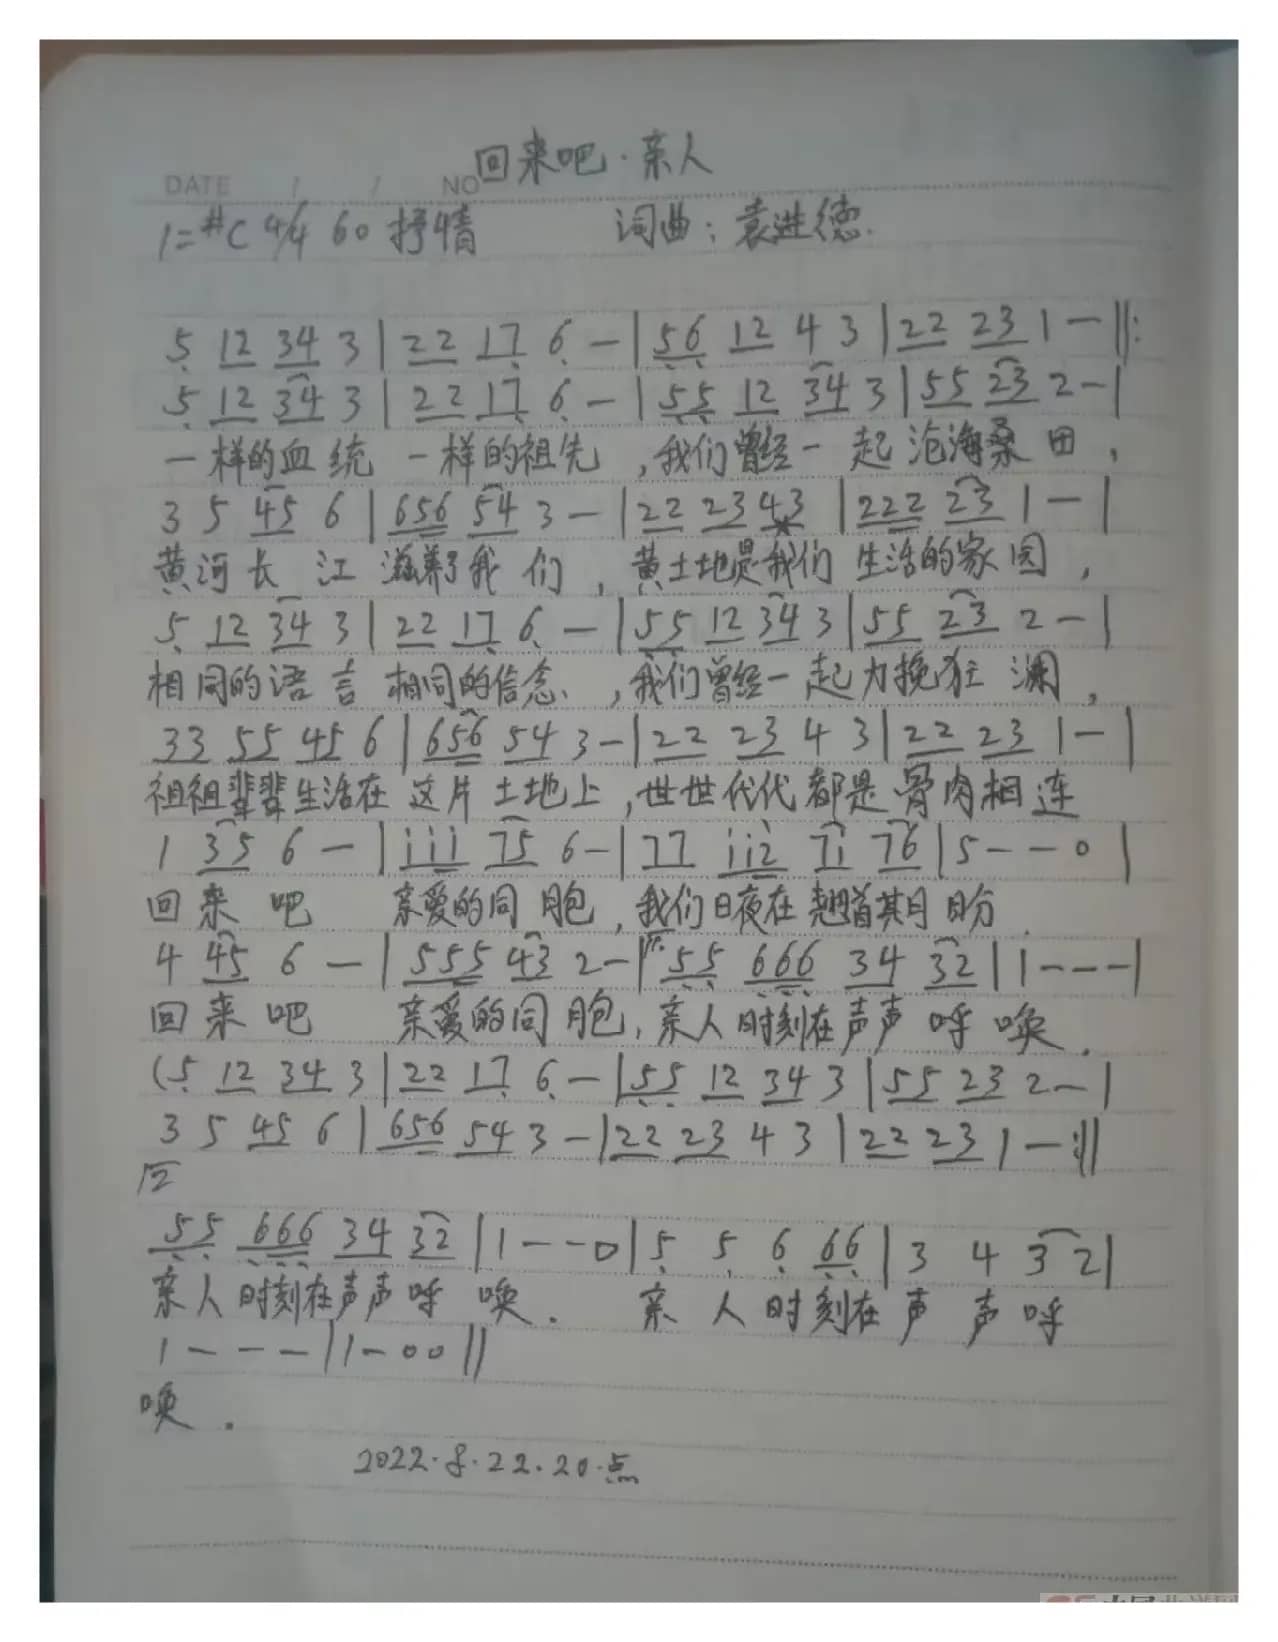 回来吧·亲人
DATE / / NO
1=#C 4/4 60 抒情 词曲：袁进德.
5 12 34 3 | 22 17 6 - | 56 12 4 3 | 22 23 1 - ||:
5 12 34 3 | 22 17 6 - | 55 12 34 3 | 55 23 2 - |
一样的血统 一样的祖先，我们曾经一起沧海桑田，
3 5 45 6 | 656 54 3 - | 22 23 43 | 222 23 1 - |
黄河长江滋养了我们，黄土地是我们生活的家园，
5 12 34 3 | 22 17 6 - | 55 12 34 3 | 55 23 2 - |
相同的语言 相同的信念，我们曾经一起力挽狂澜，
33 55 45 6 | 656 54 3 - | 22 23 4 3 | 22 23 1 - |
祖祖辈辈生活在这片土地上，世世代代都是骨肉相连
1 35 6 - | iii 75 6 - | 77 ii2 7i 76 | 5 - - 0 |
回来吧 亲爱的同胞，我们日夜在翘首期盼
4 45 6 - | 555 43 2 - | 55 666 34 32 | 1 - - - |
回来吧 亲爱的同胞，亲人时刻在声声呼唤.
(5 12 34 3 | 22 17 6 - | 55 12 34 3 | 55 23 2 - |
3 5 45 6 | 656 54 3 - | 22 23 4 3 | 22 23 1 - :||
55 666 34 32 | 1 - - 0 | 5 5 6 66 | 3 4 3 2 |
亲人时刻在声声呼唤. 亲人时刻在声声呼
1 - - - | 1 - 0 0 ||
唤.
2022.8.22.20.点